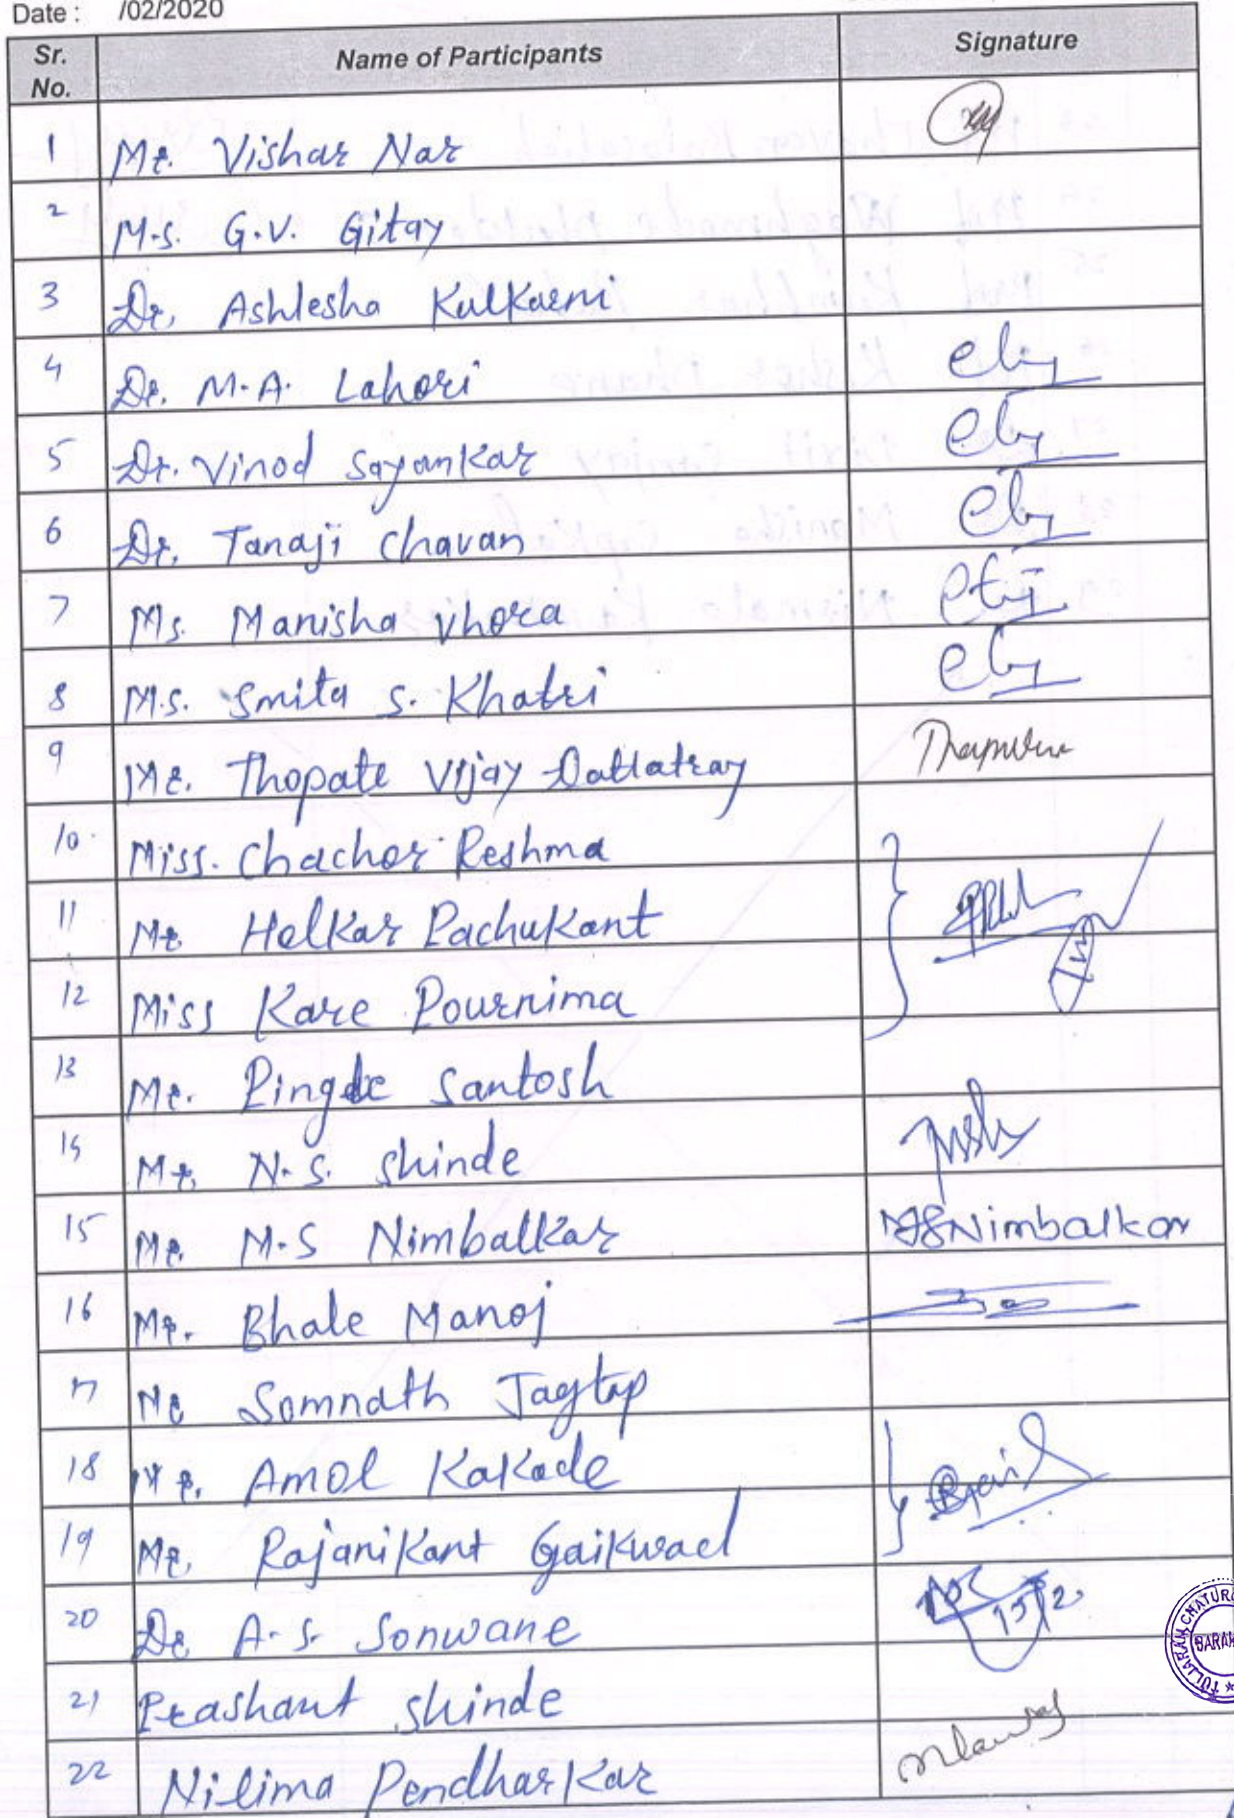 Date : /02/2020
Sr. No. Name of Participants Signature
1 Mr. Vishar Nar
2 M.s. G.V. Gitay
3 Dr. Ashlesha Kulkarni
4 Dr. M.A. Lahori
5 Dr. Vinod Sayankar
6 Dr. Tanaji Chavan
7 Ms. Manisha Vhora
8 M.s. Smita S. Khatri
9 Mr. Thopate Vijay Dattatray
10 Miss. Chachor Reshma
11 Mr Holkar Pachukant
12 Miss Kare Pournima
13 Mr. Santosh
14 Mr. N.S. Shinde
15 Mr. M.S Nimbalkar MSNimbalkar
16 Mr. Bhale Manoj
17 Mr Somnath Jagtap
18 Mr. Amol Kakade
19 Mr. Rajanikant Gaikwad
20 Dr A.S. Sonwane
21 Prashant Shinde
22 Nilima Pendharkar